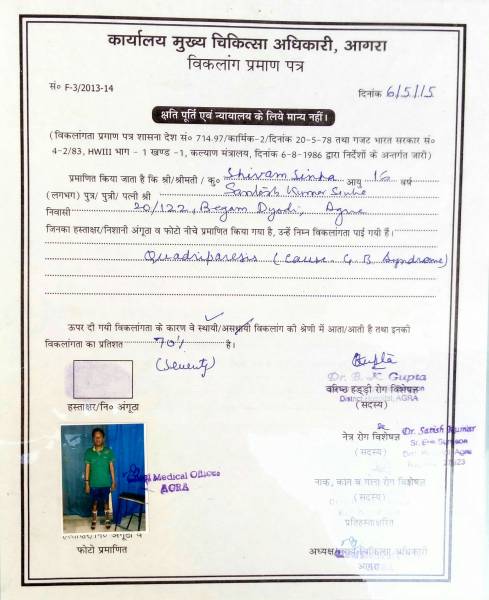 कार्यालय मुख्य चिकित्सा अधिकारी, आगरा
विकलांग प्रमाण पत्र
सं० F-3/2013-14 दिनांक 6/5/15
क्षति पूर्ति एवं न्यायालय के लिये मान्य नहीं।
(विकलांगता प्रमाण पत्र शासना देश सं० 714.97/कार्मिक-2/दिनांक 20-5-78 तथा गजट भारत सरकार सं०
4-2/83, HWIII भाग - 1 खण्ड -1, कल्याण मंत्रालय, दिनांक 6-8-1986 द्वारा निर्देशों के अन्तर्गत जारी)
प्रमाणित किया जाता है कि श्री/श्रीमती / कु० Shivam Sinha आयु 16 वर्ष
(लगभग) पुत्र/ पुत्री/ पत्नी श्री Santosh Kumar Sinha
निवासी 20/122, Begam Dyodi, Agra
जिनका हस्ताक्षर/निशानी अंगूठा व फोटो नीचे प्रमाणित किया गया है, उन्हें निम्न विकलांगता पाई गयी हैं।
Quadriparesis (Cause G.B Syndrome)
ऊपर दी गयी विकलांगता के कारण वे स्थायी/अस्थायी विकलांग की श्रेणी में आता/आती है तथा इनको
विकलांगता का प्रतिशत 70% है।
(Seventy)
Gupta
Dr. B. K Gupta
वरिष्ठ हड्डी रोग विशेषज्ञ
District Hospital, AGRA
(सदस्य)
हस्ताक्षर/नि० अंगूठा
नेत्र रोग विशेषज्ञ Dr. Satish Kumar
(सदस्य) Sr. Eye Surgeon
Medical Officer
AGRA
नाक, कान व गला रोग विशेषज्ञ
(सदस्य)
प्रतिहस्ताक्षरित
फोटो प्रमाणित
अध्यक्ष चिकित्सा अधिकारी
आगरा